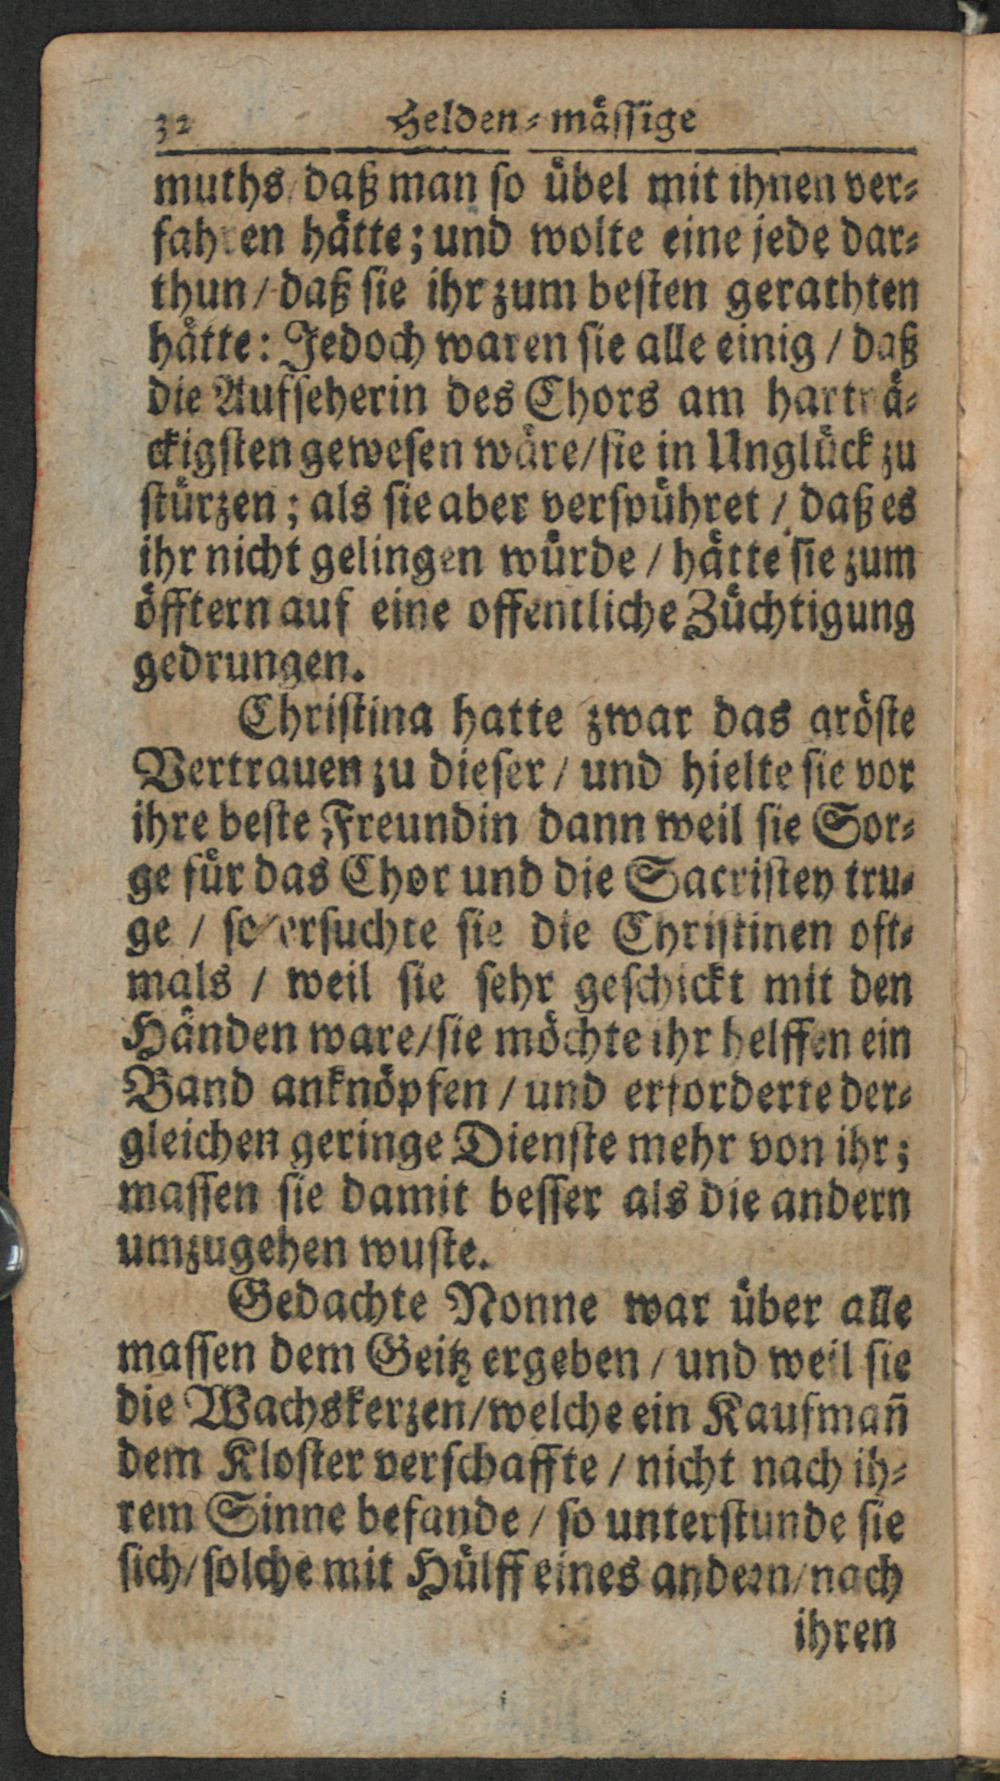 32 Helden-mässige
muths/ daß man so übel mit ihnen ver-
fahren hätte; und wolte eine jede dar-
thun / daß sie ihr zum besten gerathten
hätte: Jedoch waren sie alle einig / daß
die Aufseherin des Chors am harträ-
ckigsten gewesen wäre/sie in Unglück zu
stürzen; als sie aber verspühret / daß es
ihr nicht gelingen würde / hätte sie zum
öfftern auf eine offentliche Züchtigung
gedrungen.
Christina hatte zwar das gröste
Vertrauen zu dieser / und hielte sie vor
ihre beste Freundin dann weil sie Sor-
ge für das Chor und die Sacristey tru-
ge / so ersuchte sie die Christinen oft-
mals / weil sie sehr geschickt mit den
Händen ware/sie möchte ihr helffen ein
Band anknöpfen / und erforderte der-
gleichen geringe Dienste mehr von ihr;
massen sie damit besser als die andern
umzugehen wuste.
Gedachte Nonne war über alle
massen dem Geitz ergeben / und weil sie
die Wachskerzen/welche ein Kaufmañ
dem Kloster verschaffte / nicht nach ih-
rem Sinne befande / so unterstunde sie
sich/ solche mit Hülff eines andern/nach
ihren